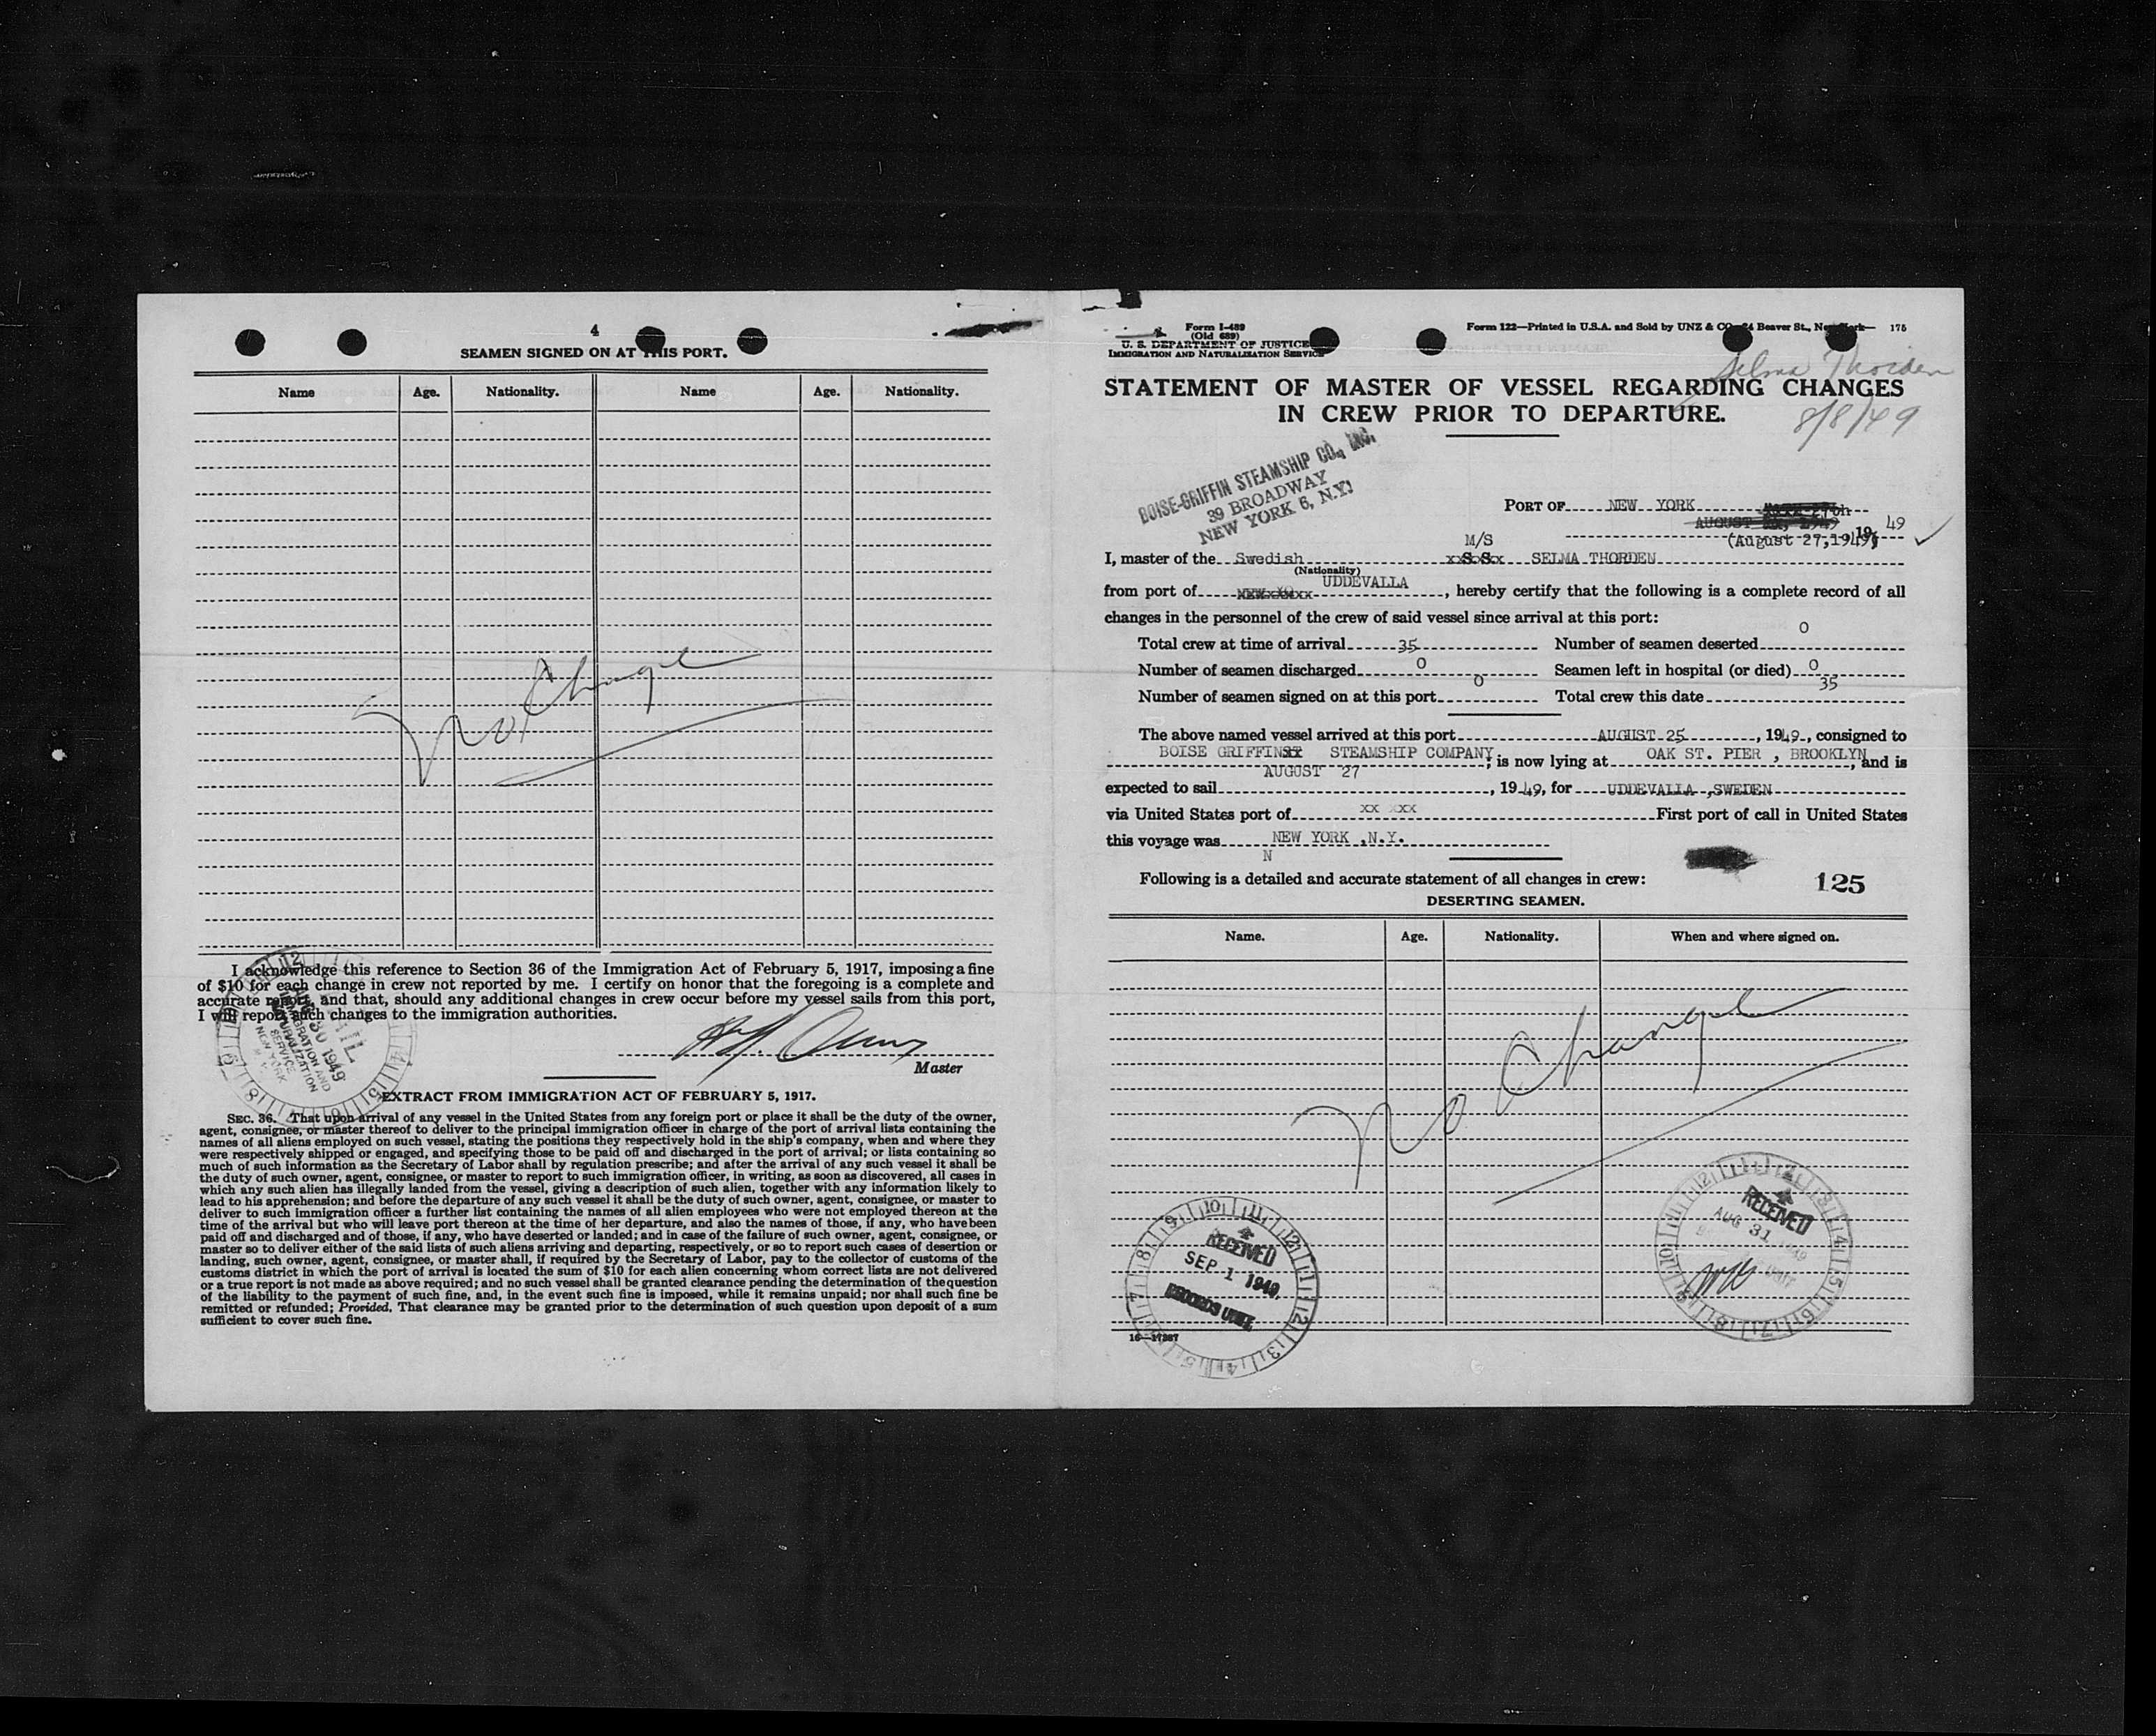 4
SEAMEN SIGNED ON AT THIS PORT.
Name Age. Nationality. Name Age. Nationality.
No Change
I acknowledge this reference to Section 36 of the Immigration Act of February 5, 1917, imposing a fine
of $10 for each change in crew not reported by me. I certify on honor that the foregoing is a complete and
accurate report, and that, should any additional changes in crew occur before my vessel sails from this port,
I will report such changes to the immigration authorities.
Master
30 1949
IMMIGRATION AND
NATURALIZATION
SERVICE
NEW YORK
EXTRACT FROM IMMIGRATION ACT OF FEBRUARY 5, 1917.
SEC. 36. That upon arrival of any vessel in the United States from any foreign port or place it shall be the duty of the owner,
agent, consignee, or master thereof to deliver to the principal immigration officer in charge of the port of arrival lists containing the
names of all aliens employed on such vessel, stating the positions they respectively hold in the ship's company, when and where they
were respectively shipped or engaged, and specifying those to be paid off and discharged in the port of arrival; or lists containing so
much of such information as the Secretary of Labor shall by regulation prescribe; and after the arrival of any such vessel it shall be
the duty of such owner, agent, consignee, or master to report to such immigration officer, in writing, as soon as discovered, all cases in
which any such alien has illegally landed from the vessel, giving a description of such alien, together with any information likely to
lead to his apprehension; and before the departure of any such vessel it shall be the duty of such owner, agent, consignee, or master to
deliver to such immigration officer a further list containing the names of all alien employees who were not employed thereon at the
time of the arrival but who will leave port thereon at the time of her departure, and also the names of those, if any, who have been
paid off and discharged and of those, if any, who have deserted or landed; and in case of the failure of such owner, agent, consignee, or
master so to deliver either of the said lists of such aliens arriving and departing, respectively, or so to report such cases of desertion or
landing, such owner, agent, consignee, or master shall, if required by the Secretary of Labor, pay to the collector of customs of the
customs district in which the port of arrival is located the sum of $10 for each alien concerning whom correct lists are not delivered
or a true report is not made as above required; and no such vessel shall be granted clearance pending the determination of the question
of the liability to the payment of such fine, and, in the event such fine is imposed, while it remains unpaid; nor shall such fine be
remitted or refunded; Provided, That clearance may be granted prior to the determination of such question upon deposit of a sum
sufficient to cover such fine.
Form I-489
(Old 689)
U. S. DEPARTMENT OF JUSTICE
IMMIGRATION AND NATURALIZATION SERVICE
Form 122—Printed in U.S.A. and Sold by UNZ & CO., 24 Beaver St., New York— 175
Selma Thorden
STATEMENT OF MASTER OF VESSEL REGARDING CHANGES
IN CREW PRIOR TO DEPARTURE.
8/8/49
BOISE-GRIFFIN STEAMSHIP CO., INC.
39 BROADWAY
NEW YORK 6, N.Y.
PORT OF NEW YORK
AUGUST 1949 19 49
(August 27,1949)
M/S
I, master of the Swedish xxS.S.x SELMA THORDEN
(Nationality)
UDDEVALLA
from port of , hereby certify that the following is a complete record of all
changes in the personnel of the crew of said vessel since arrival at this port:
Total crew at time of arrival 35 Number of seamen deserted 0
Number of seamen discharged 0 Seamen left in hospital (or died) 0
Number of seamen signed on at this port 0 Total crew this date 35
The above named vessel arrived at this port AUGUST 25, 1949, consigned to
BOISE GRIFFIN STEAMSHIP COMPANY; is now lying at OAK ST. PIER , BROOKLYN, and is
expected to sail AUGUST 27, 1949, for UDDEVALLA ,SWEDEN
via United States port of xx xxx First port of call in United States
this voyage was NEW YORK ,N.Y.
N
Following is a detailed and accurate statement of all changes in crew:
125
DESERTING SEAMEN.
Name. Age. Nationality. When and where signed on.
No Change
RECEIVED
SEP 1 1949
RECORDS UNIT
RECEIVED
AUG 31 1949
16—17287